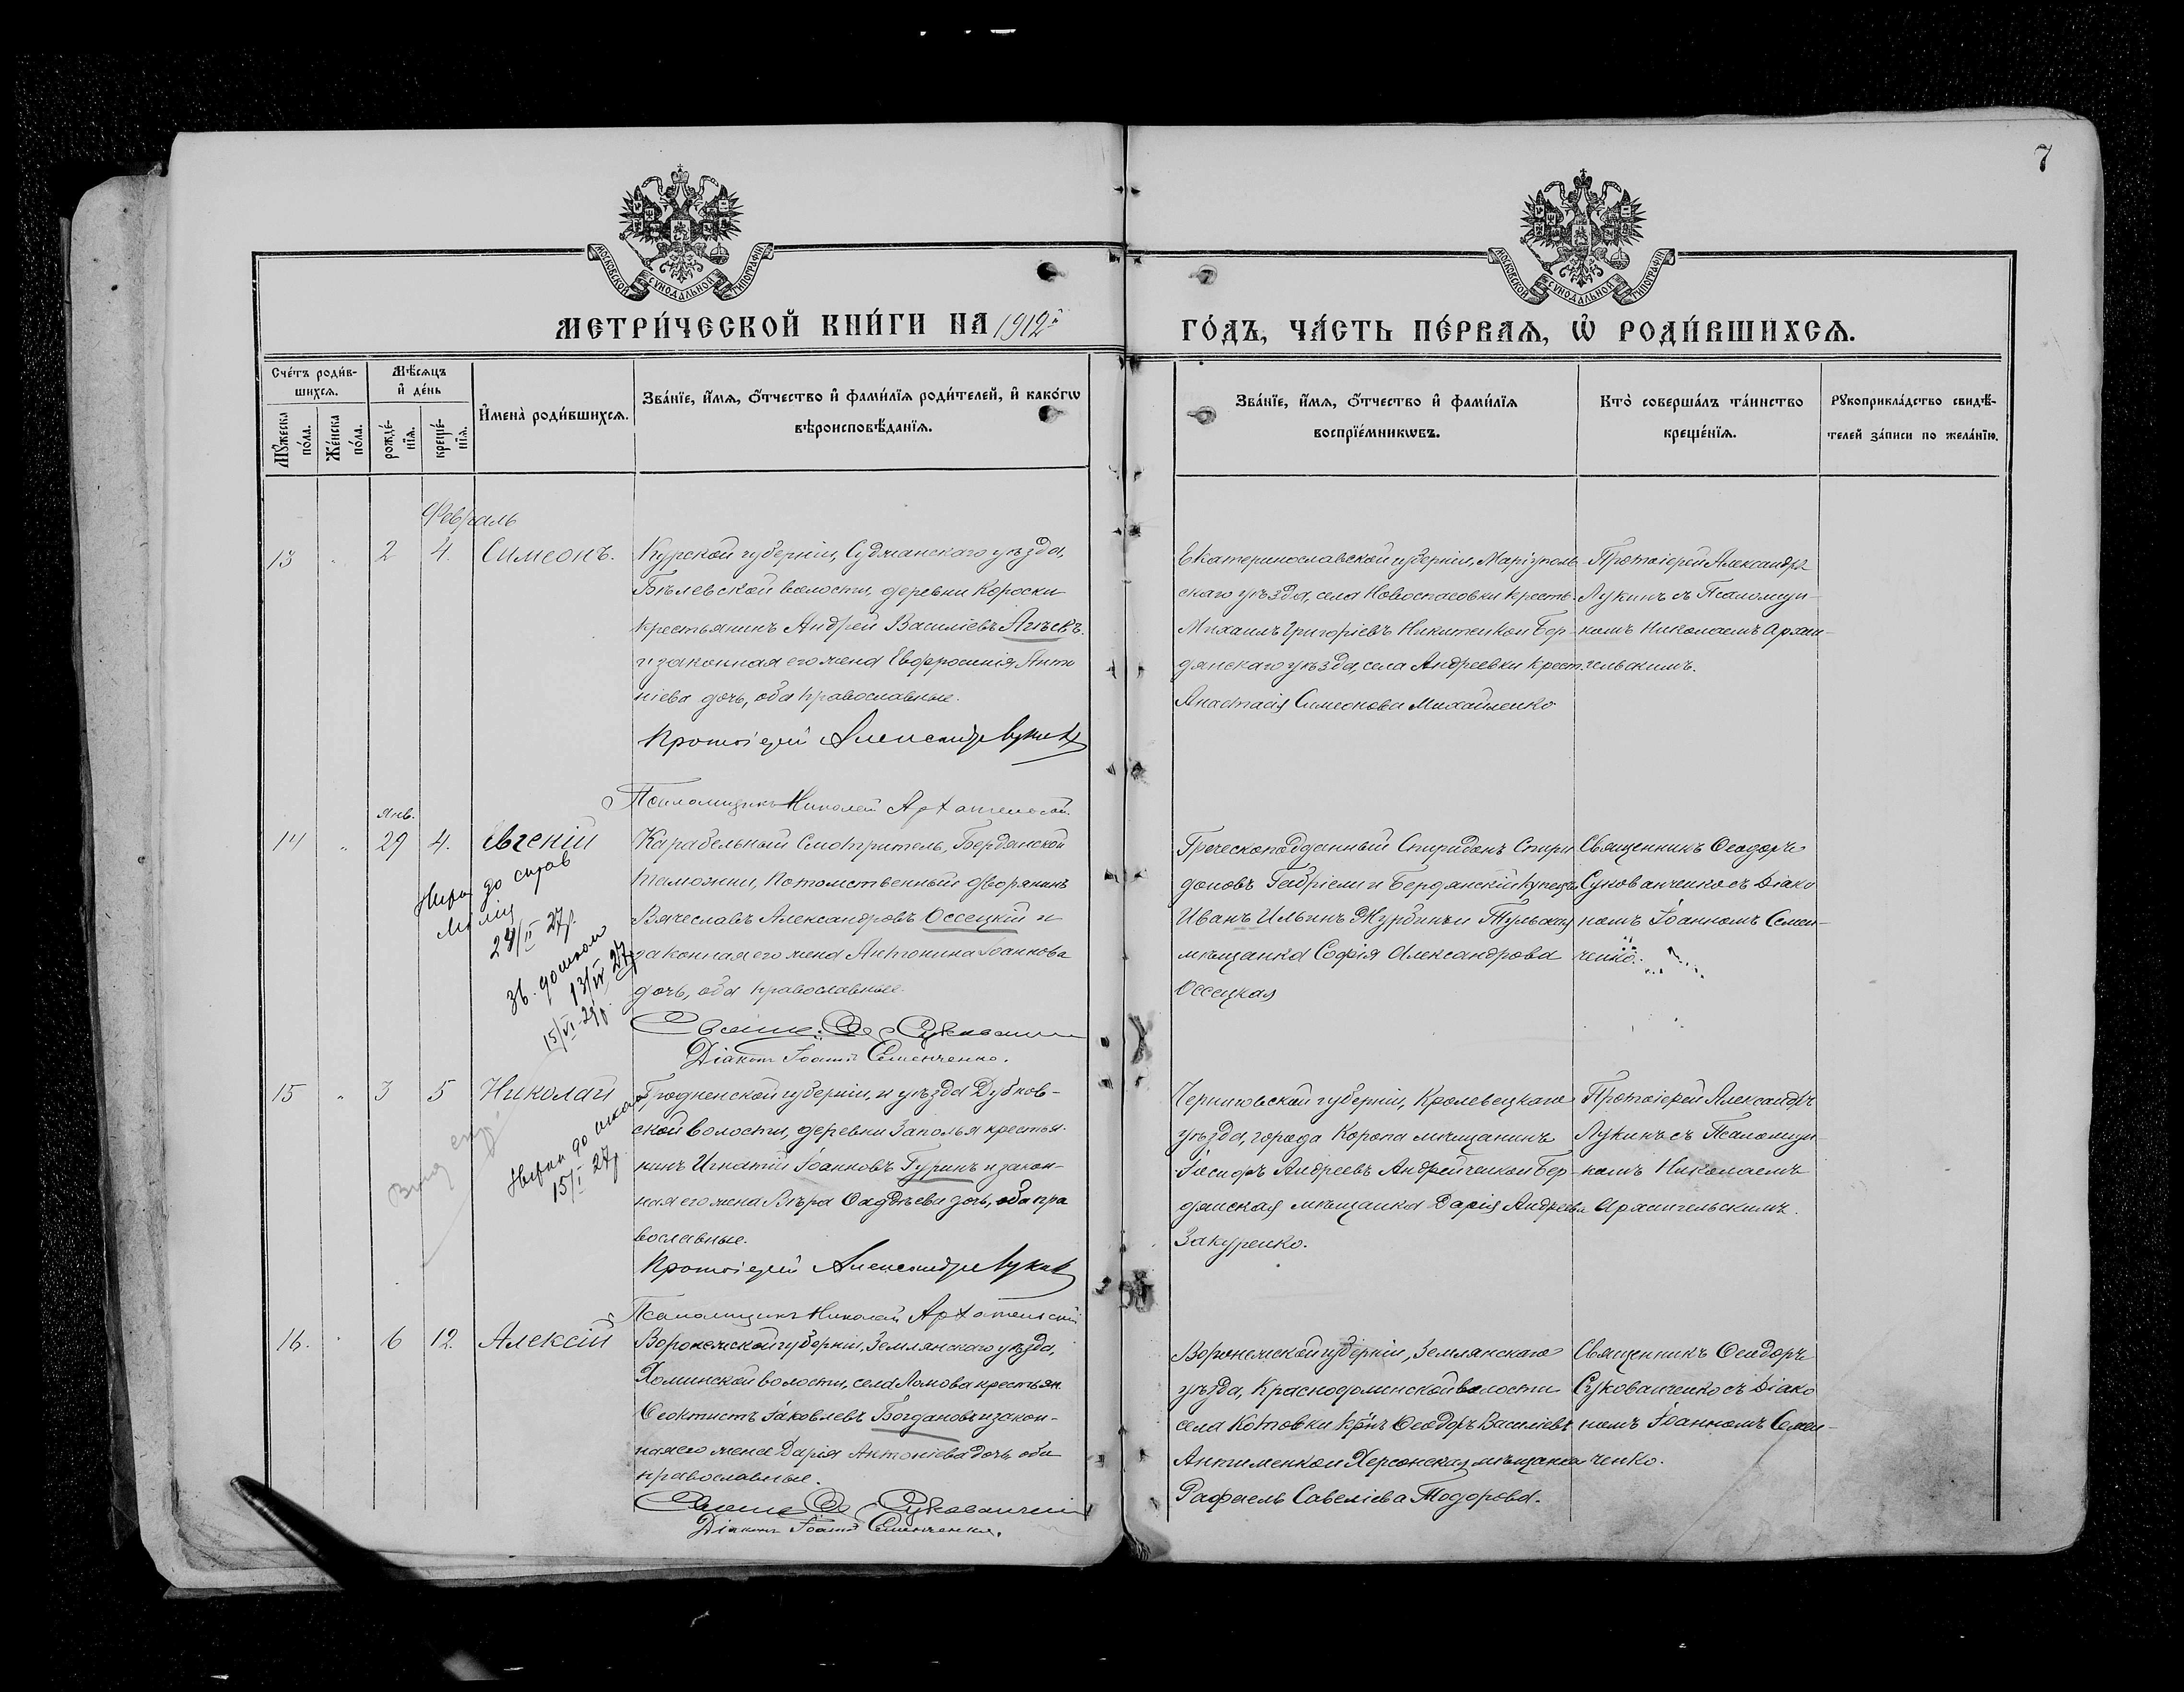 7
МОСКОВСКОЙ СѴНОДАЛЬНОЙ ТИПОГРАФІИ
МОСКОВСКОЙ СѴНОДАЛЬНОЙ ТИПОГРАФІИ
МЕТРИ́ЧЕСКОЙ КНИ́ГИ НА 1912й
ГО́ДЪ, ЧА́СТЬ ПЕ́РВАѦ, Ѡ РОДИ́ВШИХСѦ.
Сче́тъ роди́в-
шихсѧ.
Мѣ́сѧцъ
и҆ де́нь
Мꙋ́жеска
по́ла.
Же́нска
по́ла.
рожде́-
нїѧ.
креще́-
нїѧ.
И҆мена̀ роди́вшихсѧ.
Зва́нїе, и҆́мѧ, ѻ҆́тчество и҆ фами́лїѧ роди́телей, и҆ како́гѡ
вѣроисповѣ́данїѧ.
Зва́нїе, и҆́мѧ, ѻ҆́тчество и҆ фами́лїѧ
воспрїе́мникѡвъ.
Кто̀ соверша́лъ та́инство
креще́нїѧ.
Рꙋкоприкла́дство свидѣ́-
телей за́писи по жела́нїю.
Февраль
13 " 2 4. Симеонъ.
Курской губерніи, Суджанскаго уѣзда,
Бѣлевской волости, деревни Короски
крестьянинъ Андрей Василіевъ
и законная его жена Евфросинія Анто
ніева дочь, оба православные.
Протоіерей Александръ Лукинъ
Псаломщикъ Николай Архангельскій.
Екатеринославской губерніи, Маріуполь-
скаго уѣзда, села Новоспасовки крест.
Михаилъ Григоріевъ Никитенко и Бер-
дянскаго уѣзда, села Андреевки крест.
Анастасія Симеонова Михайленко
Протоіерей Александръ
Лукинъ съ Псаломщи-
комъ Николаемъ Архан-
гельскимъ.
Янв.
14 " 29 4. Евгеній
24/II 27р.
Зв. до школи
13/IV 27р
15/VI-29р.
Карабельный Смотритель, Бердянской
таможни, Потомственный дворянинъ
Вячеславъ Александровъ Оссецкій и
законная его жена Антонина Іоаннова
дочь, оба православные.
Діаконъ Іоаннъ Семенченко.
Греческоподданный Спиридонъ Спири
доновъ Габріели и Бердянскій купецъ
Иванъ Ильинъ Журбинъ и Тульская
мѣщанка Софія Александрова
Оссецкая
Священникъ Ѳеодоръ
Сукованченко съ Діако
номъ Іоанномъ Семен-
ченко.
15 " 3 5 Николай
15/I 27р.
Гродненской губерніи, и уѣзда Дубнов-
ской волости, деревни Заполья крестья-
нинъ Игнатій Іоанновъ Гуринъ и закон-
ная его жена Вѣра Ѳаддѣева дочь, оба пра
вославные.
Протоіерей Александръ Лукинъ
Псаломщикъ Николай Архангельскій
Черниговской губерніи, Кролевецкаго
уѣзда, города Коропа мѣщанинъ
Іосифъ Андреевъ Андрейченко и Бер-
дянская мѣщанка Дарія Андреева
Закуренко.
Протоіерей Александръ
Лукинъ съ Псаломщи-
комъ Николаемъ
Архангельскимъ.
16. " 6 12. Алексій
Воронежской губерніи, Землянскаго уѣзда,
села Ломова крестьян.
Ѳеоктистъ Іаковлевъ Богдановъ и закон-
ная его жена Дарія Антоніева дочь, оба
православные.
Діаконъ Іоаннъ Семенченко.
Воронежской губерніи, Землянскаго
уѣзда, Краснодолинской волости
села Котовки Ѳеодоръ Василіевъ
Антименко и Херсонская мѣщанка
Савеліева Тодорова.
Священникъ Ѳеодоръ
Сукованченко съ Діако
номъ Іоанномъ Семен-
ченко.